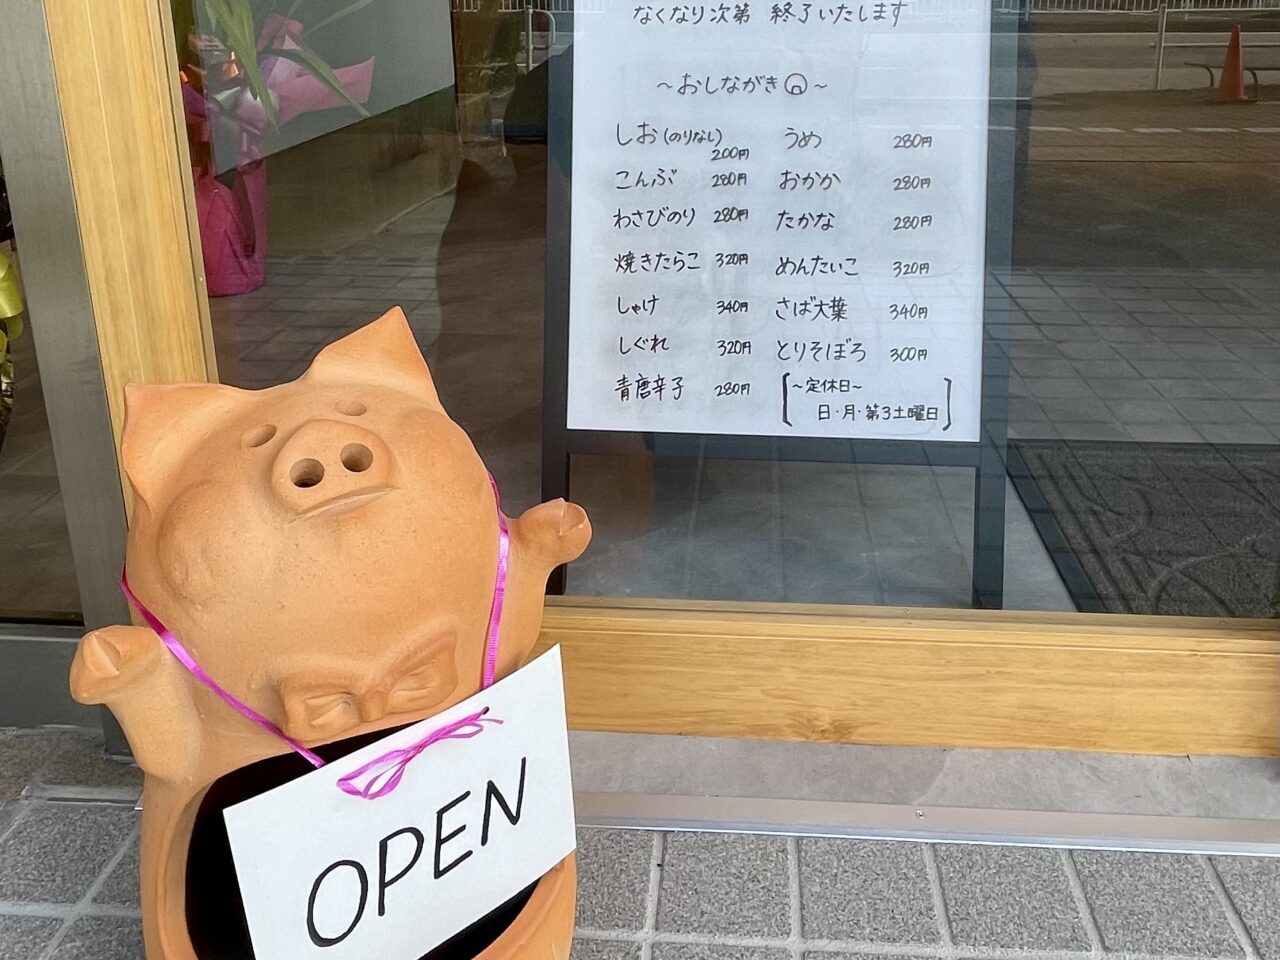 なくなり次第 終了いたします
～おしながき～
しお(のりなし) 200円 うめ 280円
こんぶ 280円 おかか 280円
わさびのり 280円 たかな 280円
焼きたらこ 320円 めんたいこ 320円
しゃけ 340円 さば大葉 340円
しぐれ 320円 とりそぼろ 300円
青唐辛子 280円
～定休日～
日・月・第3土曜日
OPEN